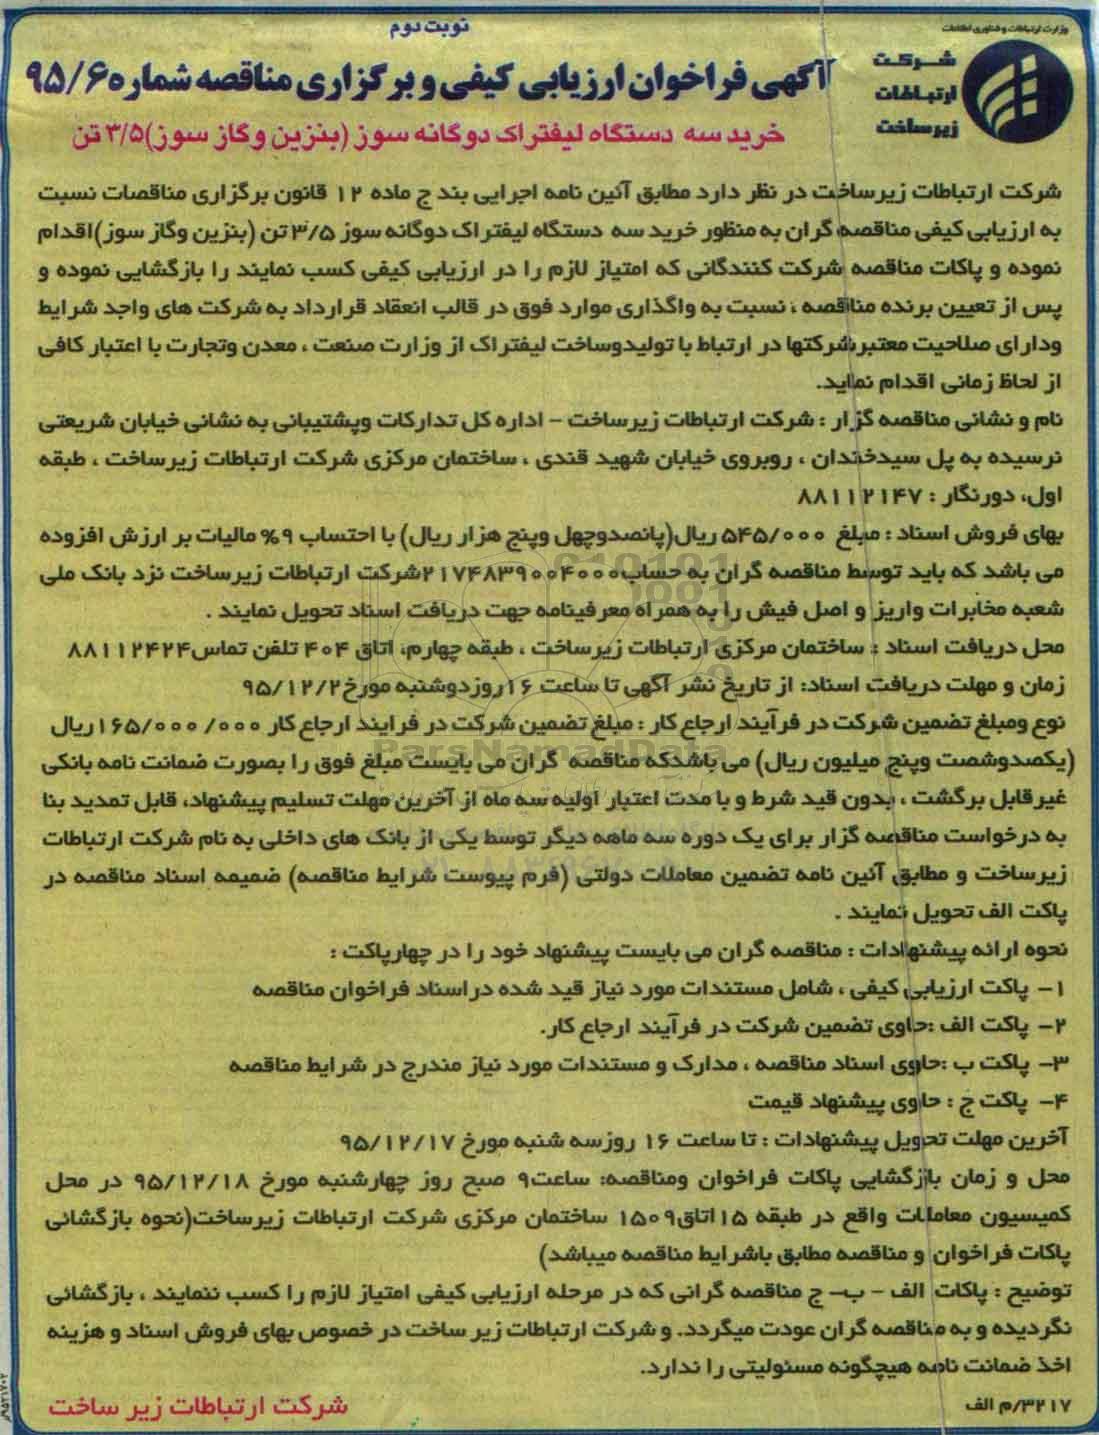 نوبت دوم
وزارت ارتباطات و فناوری اطلاعات
شرکت
ارتباطات
زیرساخت
آگهی فراخوان ارزیابی کیفی و برگزاری مناقصه شماره ۹۵/۶
خرید سه دستگاه لیفتراک دوگانه سوز (بنزین وگاز سوز)۳/۵ تن
شرکت ارتباطات زیرساخت در نظر دارد مطابق آئین نامه اجرایی بند ج ماده ۱۲ قانون برگزاری مناقصات نسبت
به ارزیابی کیفی مناقصه گران به منظور خرید سه دستگاه لیفتراک دوگانه سوز ۳/۵ تن (بنزین وگاز سوز)اقدام
نموده و پاکات مناقصه شرکت کنندگانی که امتیاز لازم را در ارزیابی کیفی کسب نمایند را بازگشایی نموده و
پس از تعیین برنده مناقصه ، نسبت به واگذاری موارد فوق در قالب انعقاد قرارداد به شرکت های واجد شرایط
ودارای صلاحیت معتبرشرکتها در ارتباط با تولیدوساخت لیفتراک از وزارت صنعت ، معدن وتجارت با اعتبار کافی
از لحاظ زمانی اقدام نماید.
نام و نشانی مناقصه گزار : شرکت ارتباطات زیرساخت – اداره کل تدارکات وپشتیبانی به نشانی خیابان شریعتی
نرسیده به پل سیدخندان ، روبروی خیابان شهید قندی ، ساختمان مرکزی شرکت ارتباطات زیرساخت ، طبقه
اول، دورنگار : ۸۸۱۱۲۱۴۷
بهای فروش اسناد : مبلغ ۵۴۵/۰۰۰ ریال(پانصدوچهل وپنج هزار ریال) با احتساب ۹% مالیات بر ارزش افزوده
می باشد که باید توسط مناقصه گران به حساب۲۱۷۴۸۳۹۰۰۴۰۰۰شرکت ارتباطات زیرساخت نزد بانک ملی
شعبه مخابرات واریز و اصل فیش را به همراه معرفینامه جهت دریافت اسناد تحویل نمایند .
محل دریافت اسناد : ساختمان مرکزی ارتباطات زیرساخت ، طبقه چهارم، اتاق ۴۰۴ تلفن تماس۸۸۱۱۲۴۲۴
زمان و مهلت دریافت اسناد: از تاریخ نشر آگهی تا ساعت ۱۶روزدوشنبه مورخ۹۵/۱۲/۲
نوع ومبلغ تضمین شرکت در فرآیند ارجاع کار : مبلغ تضمین شرکت در فرایند ارجاع کار ۱۶۵/۰۰۰/۰۰۰ریال
(یکصدوشصت وپنج میلیون ریال) می باشدکه مناقصه گران می بایست مبلغ فوق را بصورت ضمانت نامه بانکی
غیرقابل برگشت ، بدون قید شرط و با مدت اعتبار اولیه سه ماه از آخرین مهلت تسلیم پیشنهاد، قابل تمدید بنا
به درخواست مناقصه گزار برای یک دوره سه ماهه دیگر توسط یکی از بانک های داخلی به نام شرکت ارتباطات
زیرساخت و مطابق آئین نامه تضمین معاملات دولتی (فرم پیوست شرایط مناقصه) ضمیمه اسناد مناقصه در
پاکت الف تحویل نمایند .
نحوه ارائه پیشنهادات : مناقصه گران می بایست پیشنهاد خود را در چهارپاکت :
۱- پاکت ارزیابی کیفی ، شامل مستندات مورد نیاز قید شده دراسناد فراخوان مناقصه
۲- پاکت الف :حاوی تضمین شرکت در فرآیند ارجاع کار.
۳- پاکت ب :حاوی اسناد مناقصه ، مدارک و مستندات مورد نیاز مندرج در شرایط مناقصه
۴- پاکت ج : حاوی پیشنهاد قیمت
آخرین مهلت تحویل پیشنهادات : تا ساعت ۱۶ روزسه شنبه مورخ ۹۵/۱۲/۱۷
محل و زمان بازگشایی پاکات فراخوان ومناقصه: ساعت۹ صبح روز چهارشنبه مورخ ۹۵/۱۲/۱۸ در محل
کمیسیون معاملات واقع در طبقه ۱۵اتاق۱۵۰۹ ساختمان مرکزی شرکت ارتباطات زیرساخت(نحوه بازگشائی
پاکات فراخوان و مناقصه مطابق باشرایط مناقصه میباشد)
توضیح : پاکات الف – ب– ج مناقصه گرانی که در مرحله ارزیابی کیفی امتیاز لازم را کسب ننمایند ، بازگشائی
نگردیده و به مناقصه گران عودت میگردد. و شرکت ارتباطات زیر ساخت در خصوص بهای فروش اسناد و هزینه
اخذ ضمانت نامه هیچگونه مسئولیتی را ندارد.
۳۲۱۷/م الف
شرکت ارتباطات زیر ساخت
ParsNamadData